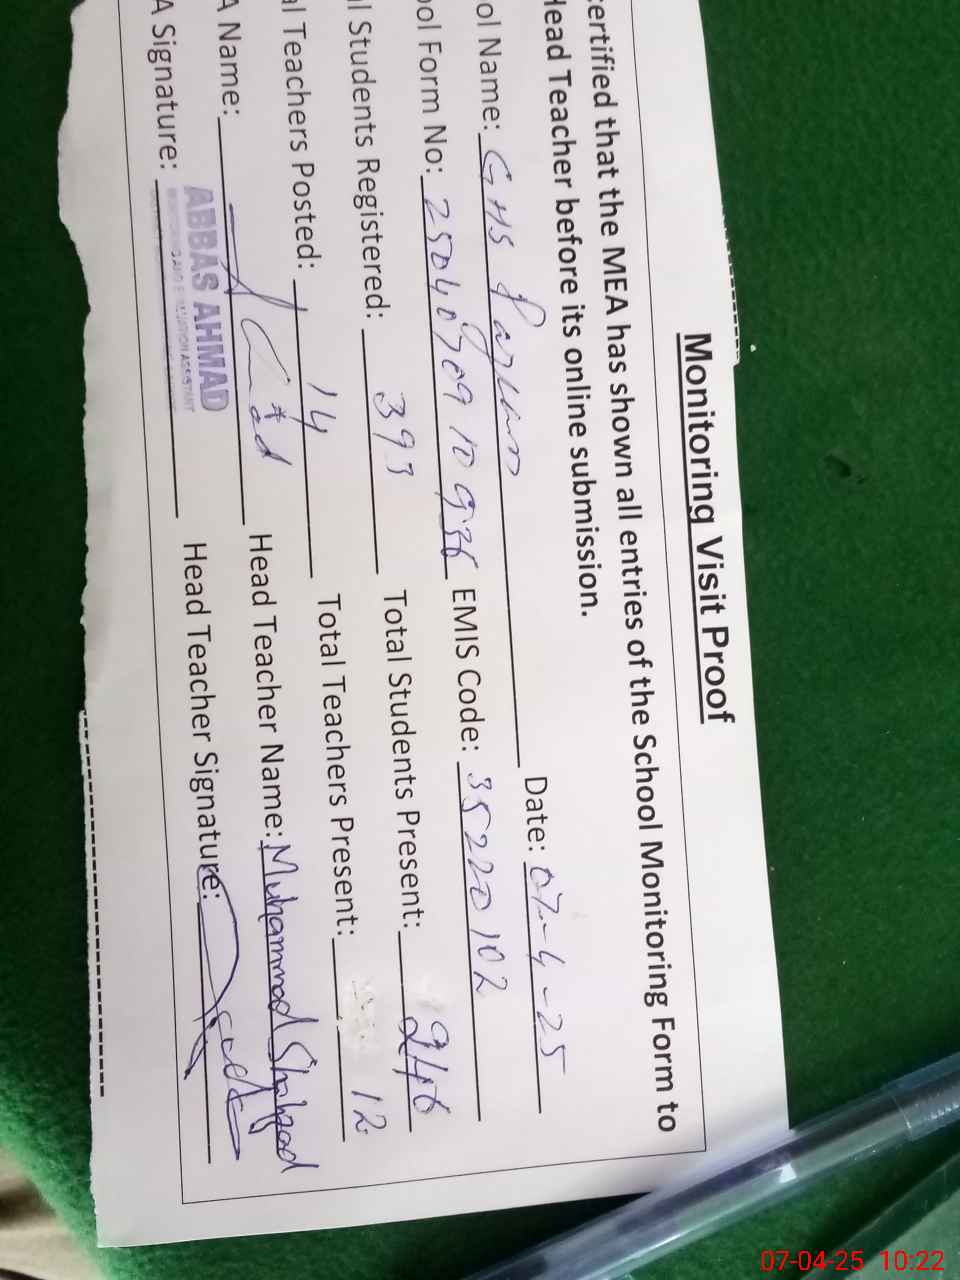 Monitoring Visit Proof
ertified that the MEA has shown all entries of the School Monitoring Form to
Head Teacher before its online submission.
ol Name: GHS Date: 07-4-25
ol Form No: EMIS Code: 35220102
l Students Registered: 393 Total Students Present:
al Teachers Posted: 14 Total Teachers Present: 12
A Name: Head Teacher Name: Muhammad Shahzad
A Signature: Head Teacher Signature:
ABBAS AHMAD
ASSISTANT
07-04-25 10:22